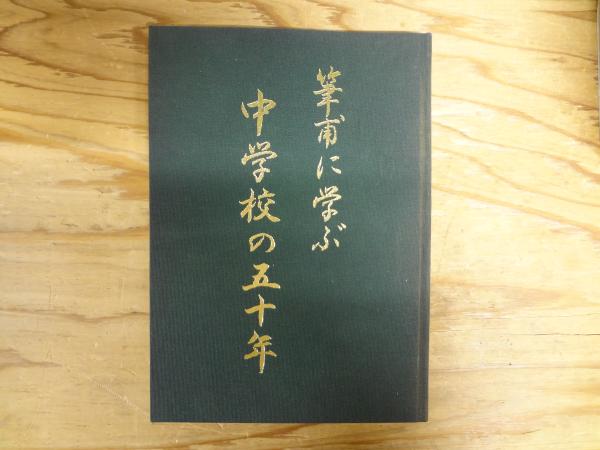 筆甫に学ぶ
中学校の五十年